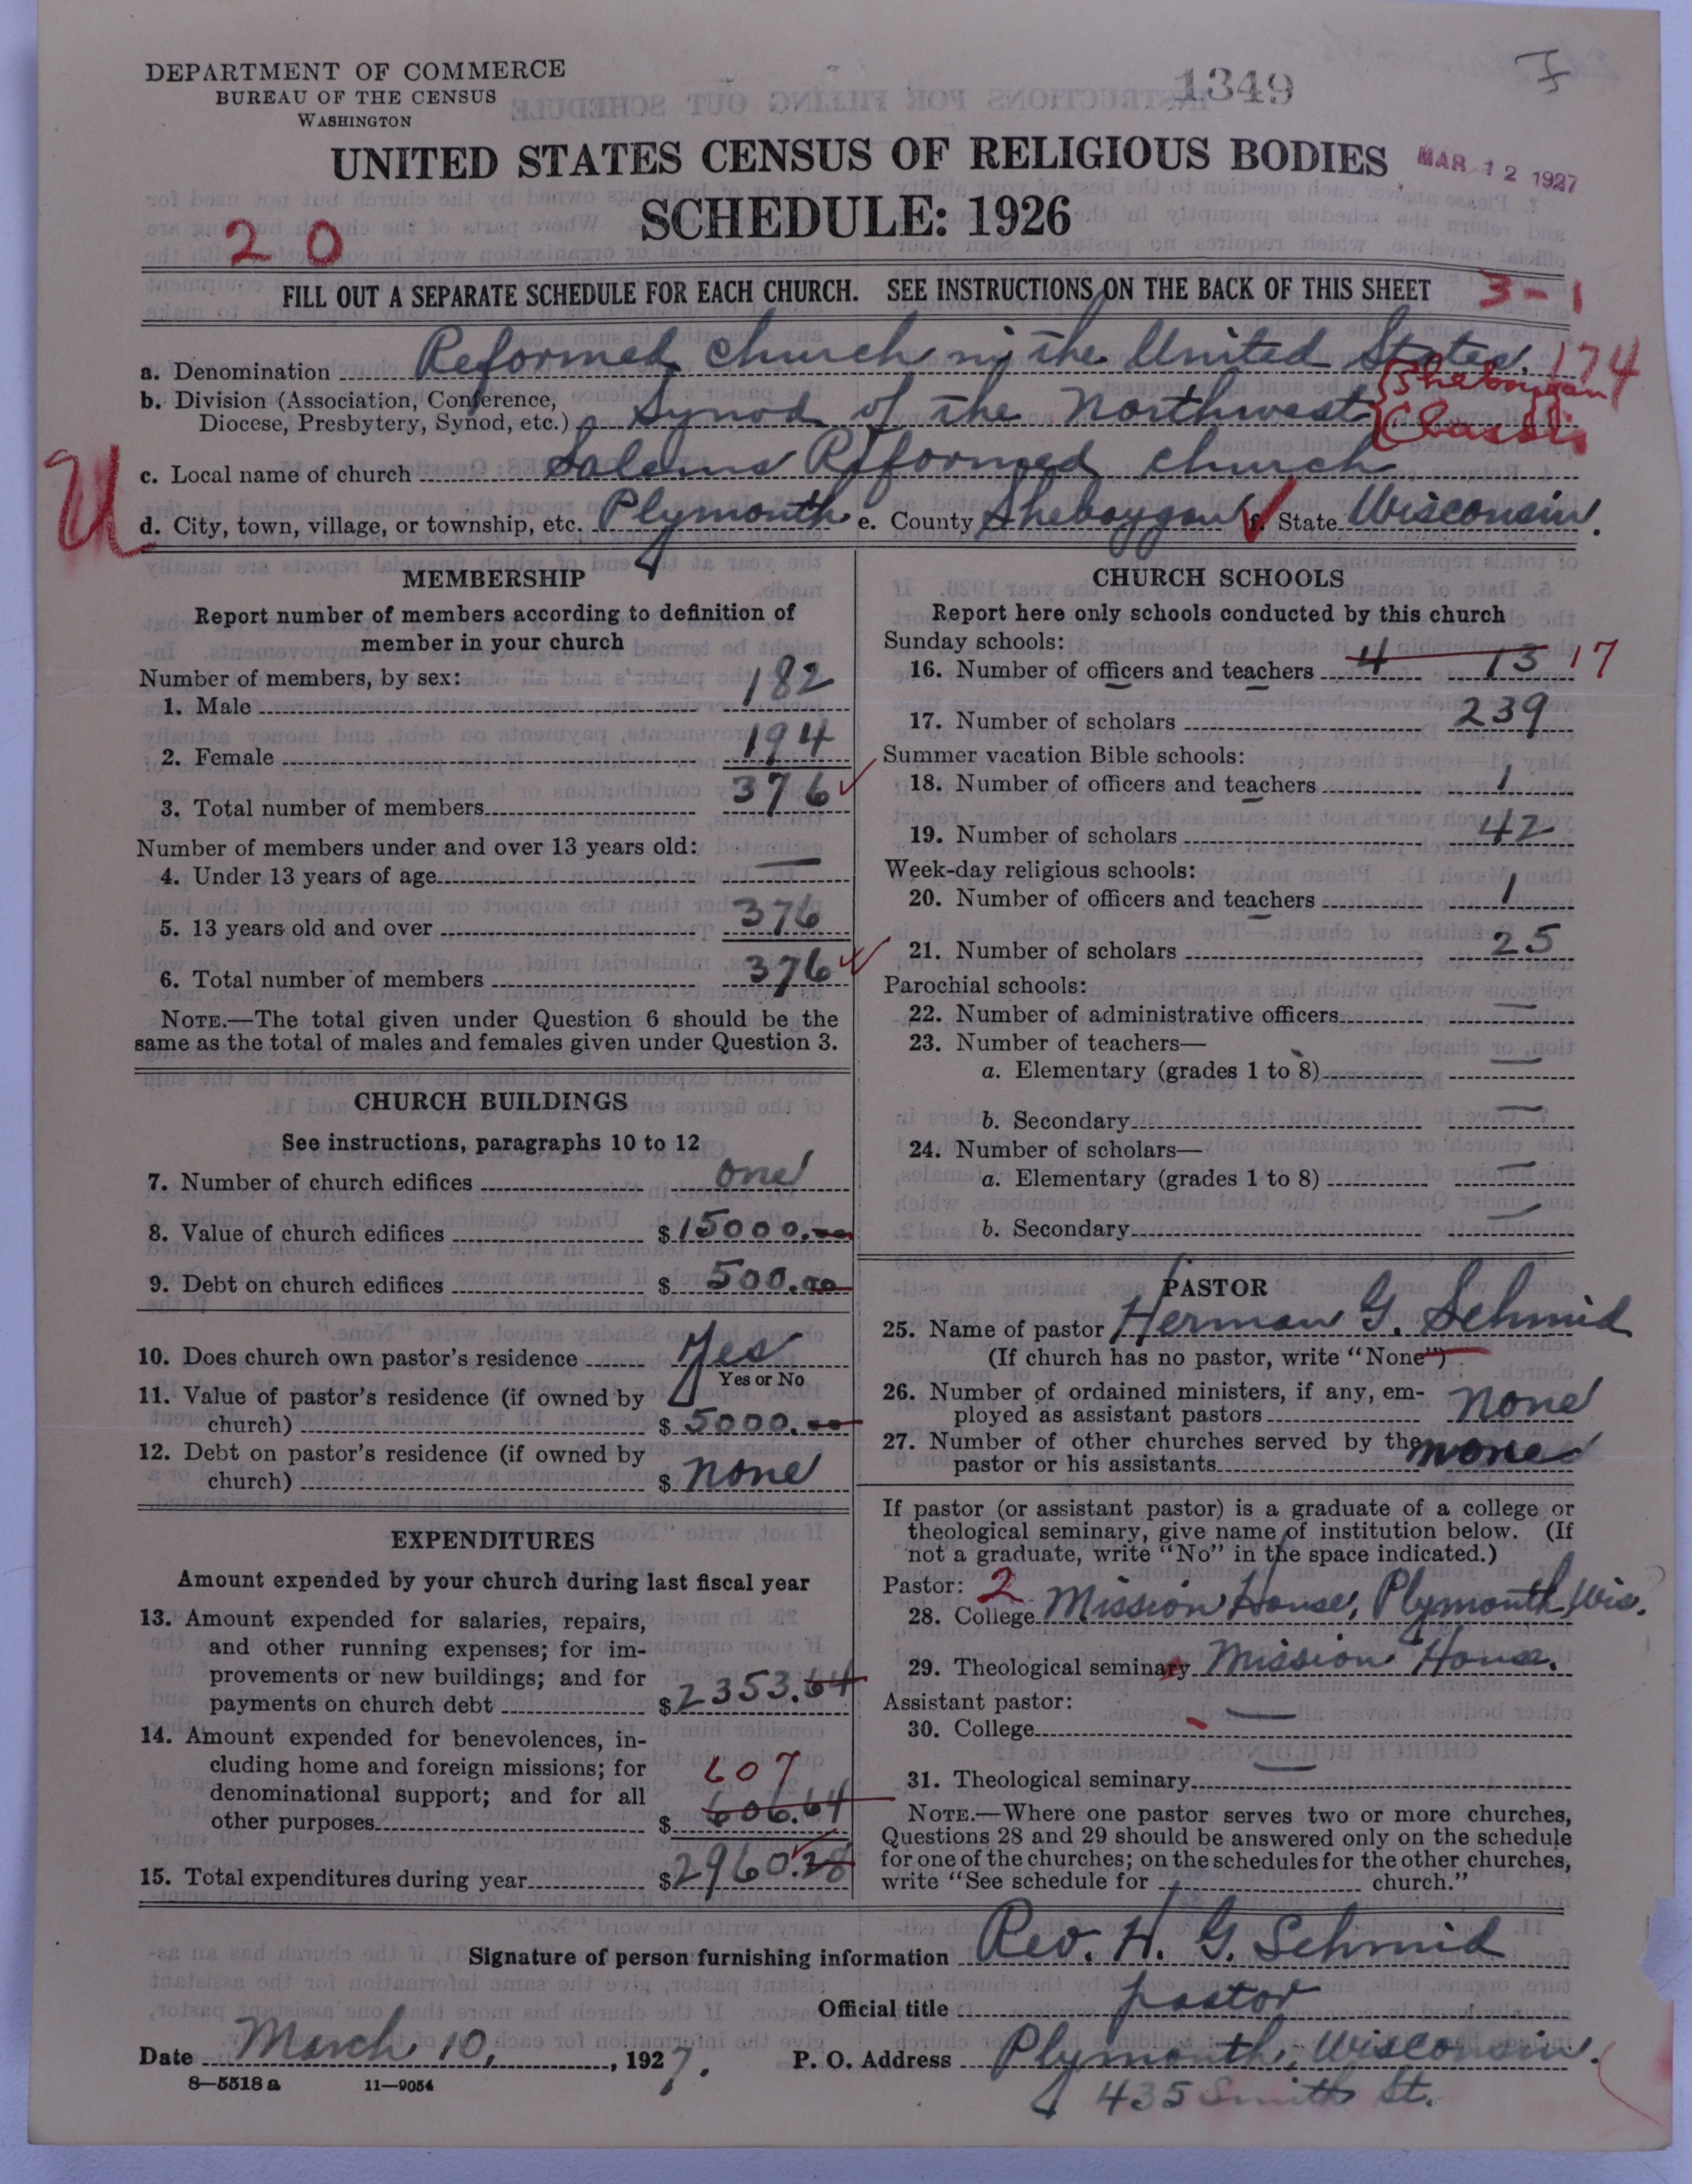 DEPARTMENT OF COMMERCE
BUREAU OF THE CENSUS
WASHINGTON
1349
UNITED STATES CENSUS OF RELIGIOUS BODIES
MAR 12 1927
SCHEDULE: 1926
20
FILL OUT A SEPARATE SCHEDULE FOR EACH CHURCH. SEE INSTRUCTIONS ON THE BACK OF THIS SHEET
3-1
a. Denomination Reformed Church in the United States. 174
b. Division (Association, Conference,
Diocese, Presbytery, Synod, etc.) Synod of the Northwest {Sheboygan Classis
c. Local name of church Salems Reformed Church
U
d. City, town, village, or township, etc. Plymouth e. County Sheboygan f. State Wisconsin.
MEMBERSHIP
Report number of members according to definition of
member in your church
Number of members, by sex:
1. Male 182
2. Female 194
3. Total number of members 376
Number of members under and over 13 years old:
4. Under 13 years of age —
5. 13 years old and over 376
6. Total number of members 376
NOTE.—The total given under Question 6 should be the
same as the total of males and females given under Question 3.
CHURCH BUILDINGS
See instructions, paragraphs 10 to 12
7. Number of church edifices one
8. Value of church edifices $15000.00
9. Debt on church edifices $500.00
10. Does church own pastor's residence Yes
Yes or No
11. Value of pastor's residence (if owned by
church) $5000.00
12. Debt on pastor's residence (if owned by
church) $none
EXPENDITURES
Amount expended by your church during last fiscal year
13. Amount expended for salaries, repairs,
and other running expenses; for im-
provements or new buildings; and for
payments on church debt $2353.64
14. Amount expended for benevolences, in-
cluding home and foreign missions; for 607
denominational support; and for all
other purposes $606.64
15. Total expenditures during year $2960.28
CHURCH SCHOOLS
Report here only schools conducted by this church
Sunday schools:
16. Number of officers and teachers 4 13 17
17. Number of scholars 239
Summer vacation Bible schools:
18. Number of officers and teachers 1
19. Number of scholars 42
Week-day religious schools:
20. Number of officers and teachers 1
21. Number of scholars 25
Parochial schools:
22. Number of administrative officers —
23. Number of teachers—
a. Elementary (grades 1 to 8) —
b. Secondary —
24. Number of scholars—
a. Elementary (grades 1 to 8) —
b. Secondary —
PASTOR
25. Name of pastor Herman G. Schmid
(If church has no pastor, write "None")
26. Number of ordained ministers, if any, em-
ployed as assistant pastors none
27. Number of other churches served by the
pastor or his assistants none
If pastor (or assistant pastor) is a graduate of a college or
theological seminary, give name of institution below. (If
not a graduate, write "No" in the space indicated.)
Pastor: 2
28. College Mission House, Plymouth, Wis.
29. Theological seminary Mission House.
Assistant pastor:
30. College —
31. Theological seminary —
NOTE.—Where one pastor serves two or more churches,
Questions 28 and 29 should be answered only on the schedule
for one of the churches; on the schedules for the other churches,
write "See schedule for church."
Signature of person furnishing information Rev. H. G. Schmid
Official title pastor
Date March 10, 1927. P. O. Address Plymouth, Wisconsin.
8—5518 a 11—9054
435 Smith St.